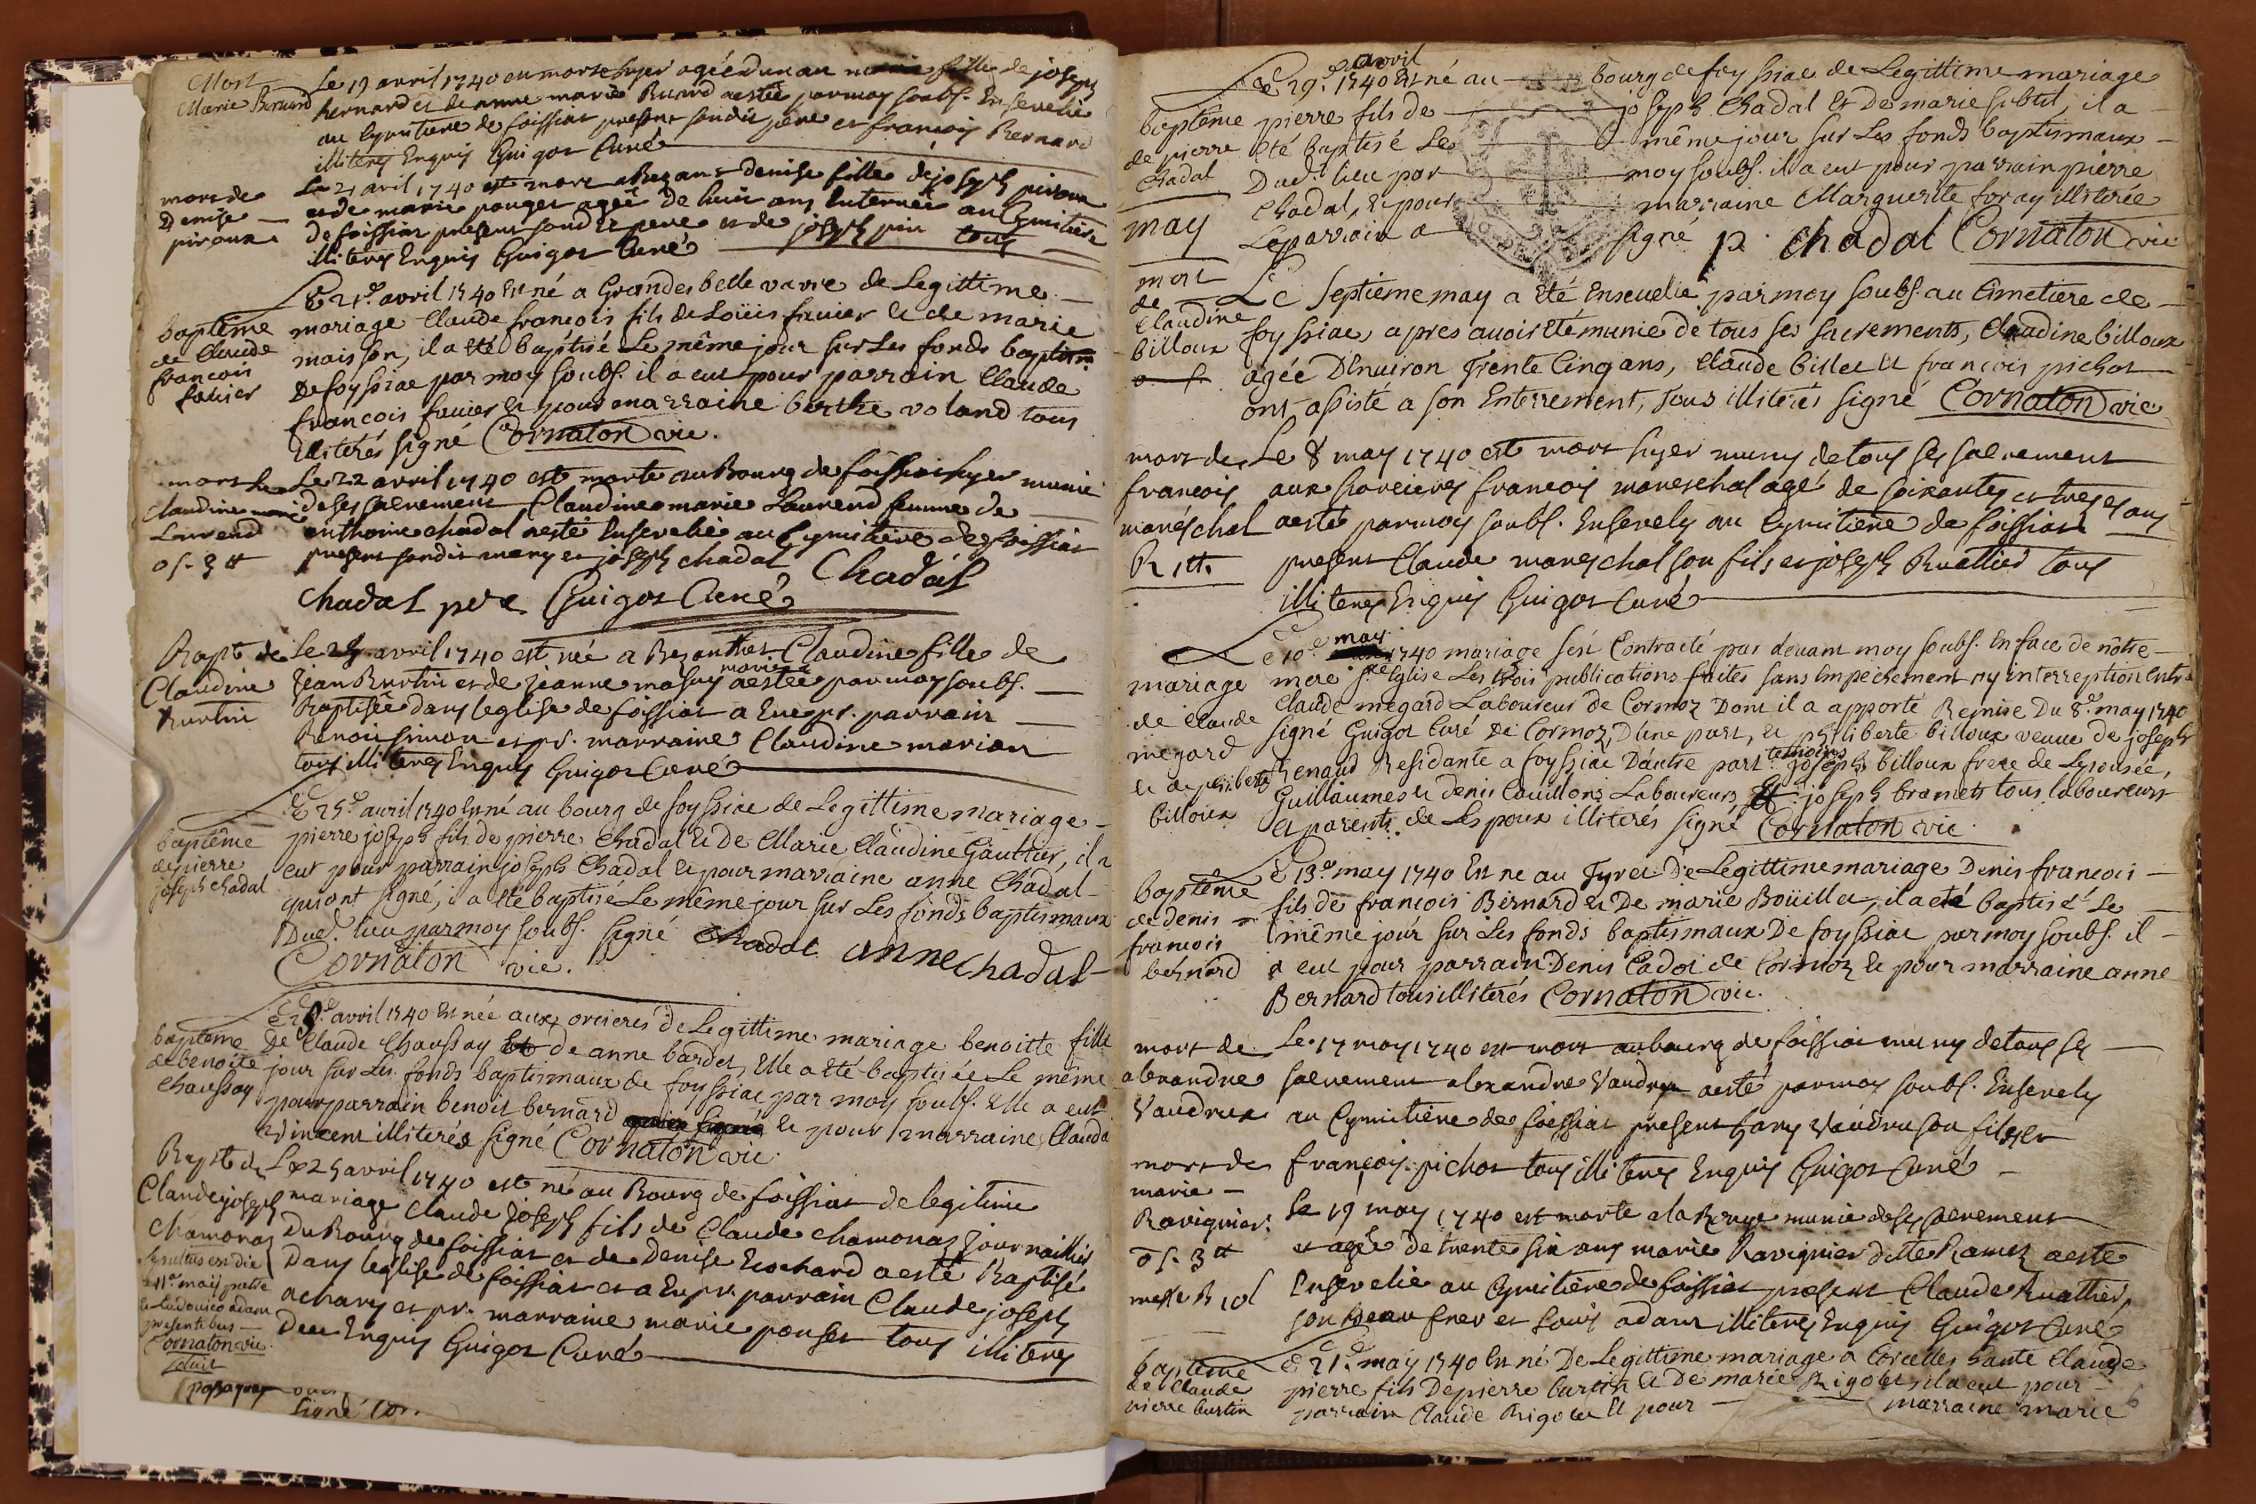 Mort
Marie Bernard
Le 19 avril 1740 est morte hyer agée d'un an fille de joseph
bernard et de anne marie aesté par moy soubs. Ensevelie
au Cymitiere de foissiat present sondit pere et françois Bernard
illiteres Enquis Guigot Curé
mort de
Denise
piroux
Le 21 avril 1740 est morte a denise fille de joseph piroux
et de marie ponget agée de huit ans Enterrée au Cymitiere
de foissiat present sondit pere et de joseph tous
illiteres Enquis Guigot Curé
baptême
de Claude
francois
favier
Le 21.e avril 1740 Est né a Grandes belle vavre de Legittime
mariage Claude francois fils de Loüis favier et de marie
maisson, il a eté baptisé Le même jour sur Les fonds baptism.
De foyssiac par moy soubs. il a eut pour parrain Claude
francois favier et pour marraine berthe voland tous
Illiterés signé Cornaton vic.
mort de
Claudine marie
Laurend
o f. 3 tt
Le 22 avril 1740 est morte au Bourg de foissiat hyer munie
de ses sacrement Claudine marie Laurend femme de
anthoine chadal aesté Ensevelie au Cymitiere de foissiat
present sondit mary et joseph chadal Chadal
chadal Guigot Curé
Bapt. de
Claudine
burtin
Le avril 1740 est née a Claudine fille de
marie
Jean Burtin et de Jeanne aestée par moy soubs.
Baptisée dans leglise de foissiat a Eu pr. parrain
Benoit et pr. marraine Claudine marion
tous illiteres Enquis Guigot Curé
baptême
de pierre
joseph chadal
Le 25.e avril 1740 Est né au bourg de foyssiac de Legittime mariage
pierre joseph fils de pierre Chadal et De Marie Claudine Gauttier, il a
eut pour parrain joseph Chadal et pour marraine anne Chadal
qui ont signé, il a eté baptisé Le même jour sur Les fonds baptismaux
Dud. lieu par moy soubs. signé chadal anne chadal
Cornaton vic.
baptême
de benoite
Chaussoy
Le avril 1740 Est née aux orcieres de Legittime mariage benoitte fille
De Claude Chaussoy Et de anne bardet, Elle a eté baptisée Le même
jour sur Les fonds baptismaux de foyssiac par moy soubs. Elle a eut
pour parrain benoit bernard et pour marraine Clauda
vincent illiterés signé Cornaton vic.
Bapt. de
Claude joseph
chamonas
sepultus est die
11.a maij patre
et Ludovico adam
presentibus
Cornaton vic.
Le 25 avril 1740 est né au Bourg de foissiat de legitime
mariage Claude Joseph fils de Claude chamonas Journaillier
Du Bourg de foissiat et de Denise aesté Baptisé
Dans leglise de foissiat et a Eu pr. parrain Claude joseph
et pr. marraine marie ponset tous illiteres
Enquis Guigot Curé
signé Cor.
baptême
de pierre
Chadal
avril
Le 29.e 1740 Est né au bourg de foyssiac de Legittime mariage
pierre fils de joseph Chadal et De marie subtil, il a
eté baptisé Le même jour sur Les fonds baptismaux
Dud. lieu par moy soubs. il a eut pour parrain pierre
Chadal, et pour marraine Marguerite foray illiterée
Le parrain a signé p. chadal Cornaton vic
may
mort
de
Claudine
billoux
o f.
Le septième may a eté Ensevelie par moy soubs. au Cimetiere de
foyssiac, apres avoir eté munie de tous ses sacrements, Claudine billoux
agée D'environ Trente Cinq ans, Claude billet et francois pichot
ont assisté a son Enterrement, Tous illiterés signé Cornaton vic.
mort de
francois
maréschal
R 1 tt.
Le 8 may 1740 est mort hyer muny de tous ses sacrement
aux francois mareschal agé de soixantes et treses ans
aesté par moy soubs. Ensevely au Cymitiere de foissiat
present Claude mareschal son fils et joseph Ruattier tous
illiteres Enquis Guigot Curé
mariage
de Claude
megard
et de philiberte
billoux
may
Le 10.e 1740 mariage s'est Contracté par devant moy soubs. En face de nôtre
mere s.te Eglise Les trois publications faites sans Empechement ny interreption Entre
Claude megard Laboureur de Cormoz Dont il a apporté Remise Du 8.e may 1740
signé Guigot Curé De Cormoz D'une part, et philiberte billoux veuve de joseph
temoins
Renaud Residante a foyssiac D'autre part. joseph billoux frere de Lepousée,
Guillaumes et denis Cavillons Laboureurs Et joseph bramet tous laboureurs
et parents de Lepoux illiterés signé Cornaton vic
baptême
de denis
francois
bernard
Le 13.e may 1740 Est né au Tyret De Legittime mariage Denis francois
fils de francois Bernard et De marie Boüillet, il a eté baptisé Le
même jour sur Les fonds baptismaux De foyssiac par moy soubs. il
a eut pour parrain Denis Cadot de Cormoz et pour marraine anne
Bernard tous illiterés Cornaton vic.
mort de
alexandre
Vaudrux
Le 17 may 1740 est mort au bourg de foissiat muny de tous ses
sacrement alexandre Vaudrux aesté par moy soubs. Ensevely
au Cymitiere de foissiat present hary Vaudru son fils et
françois pichot tous illiteres Enquis Guigot Curé
mort de
marie
Ravignier
o f. 3 tt
messe R 10 f
Le 19 may 1740 est morte a la munie de ses sacrement
et agée de trente six ans marie Ravignier ditte Ramez aesté
Ensevelie au Cymitiere de foissiat present Claude Ruattier
son Beau frere et Louis adam illiteres Enquis Guigot Curé
baptême
de Claude
pierre burtin
Le 21.e may 1740 Est né De Legittime mariage a Corcelles Claude
pierre fils De pierre burtin et De marie Rigolet, il a eut pour
parrain Claude Rigolet et pour marraine marie
6